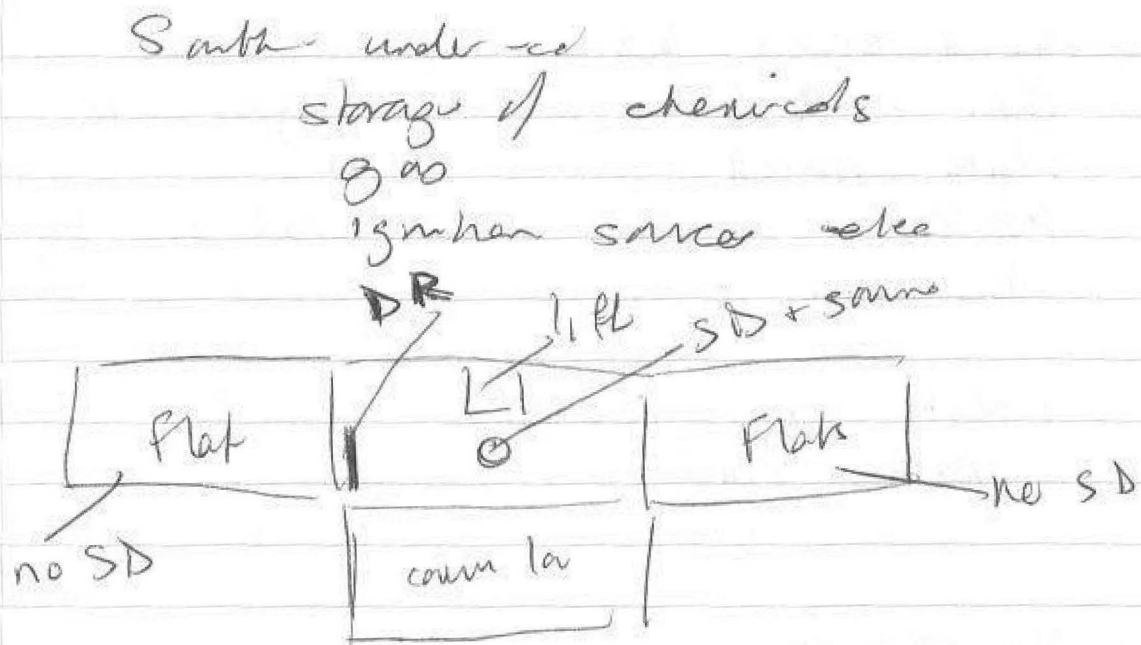 South under
storage of chemicals
gas
ignition sources elec
DR
lift
SD + soun
Flat
Flats
no SD
no SD
comm